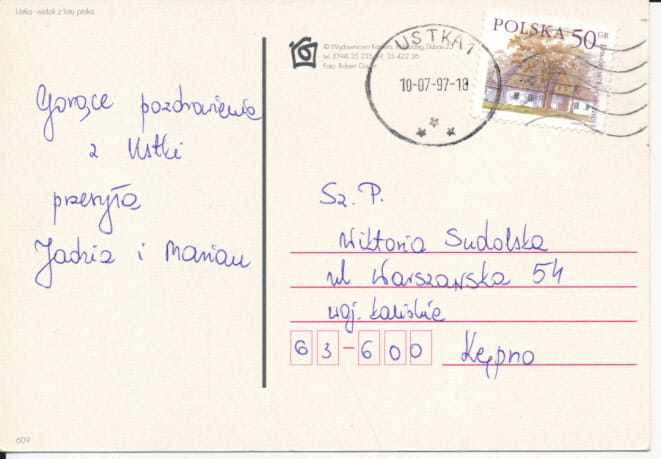 Ustka - widok z lotu ptaka
© Wydawnictwo
tel. (094) 35 235 19, 35 422 36
Foto: Robert
USTKA 1
10-07-97-18
POLSKA 50 GR
Gorące pozdrowienia
z Ustki
przesyła
Jadzia i Marian
Sz. P.
Wiktoria Sudolska
ul Warszawska 54
woj. kaliskie
63-600 Kępno
609